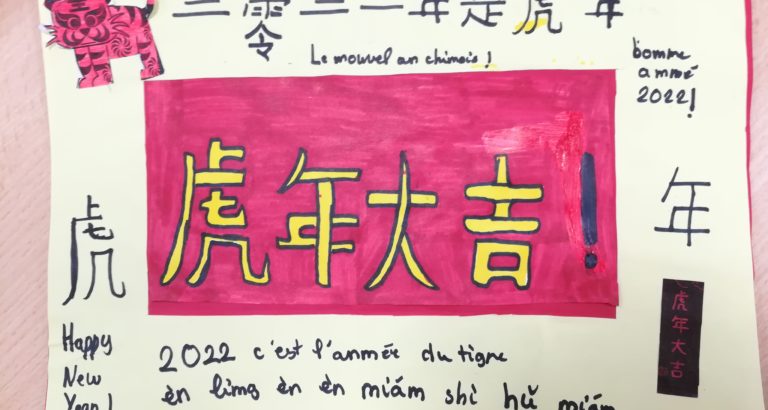 二零二二年是虎年
Le nouvel an chinois !
bonne
année
2022!
虎年大吉!
虎
年
虎年大吉
Happy
New
Year!
2022 c'est l'année du tigre
èn líng èn èn nián shì hǔ nián